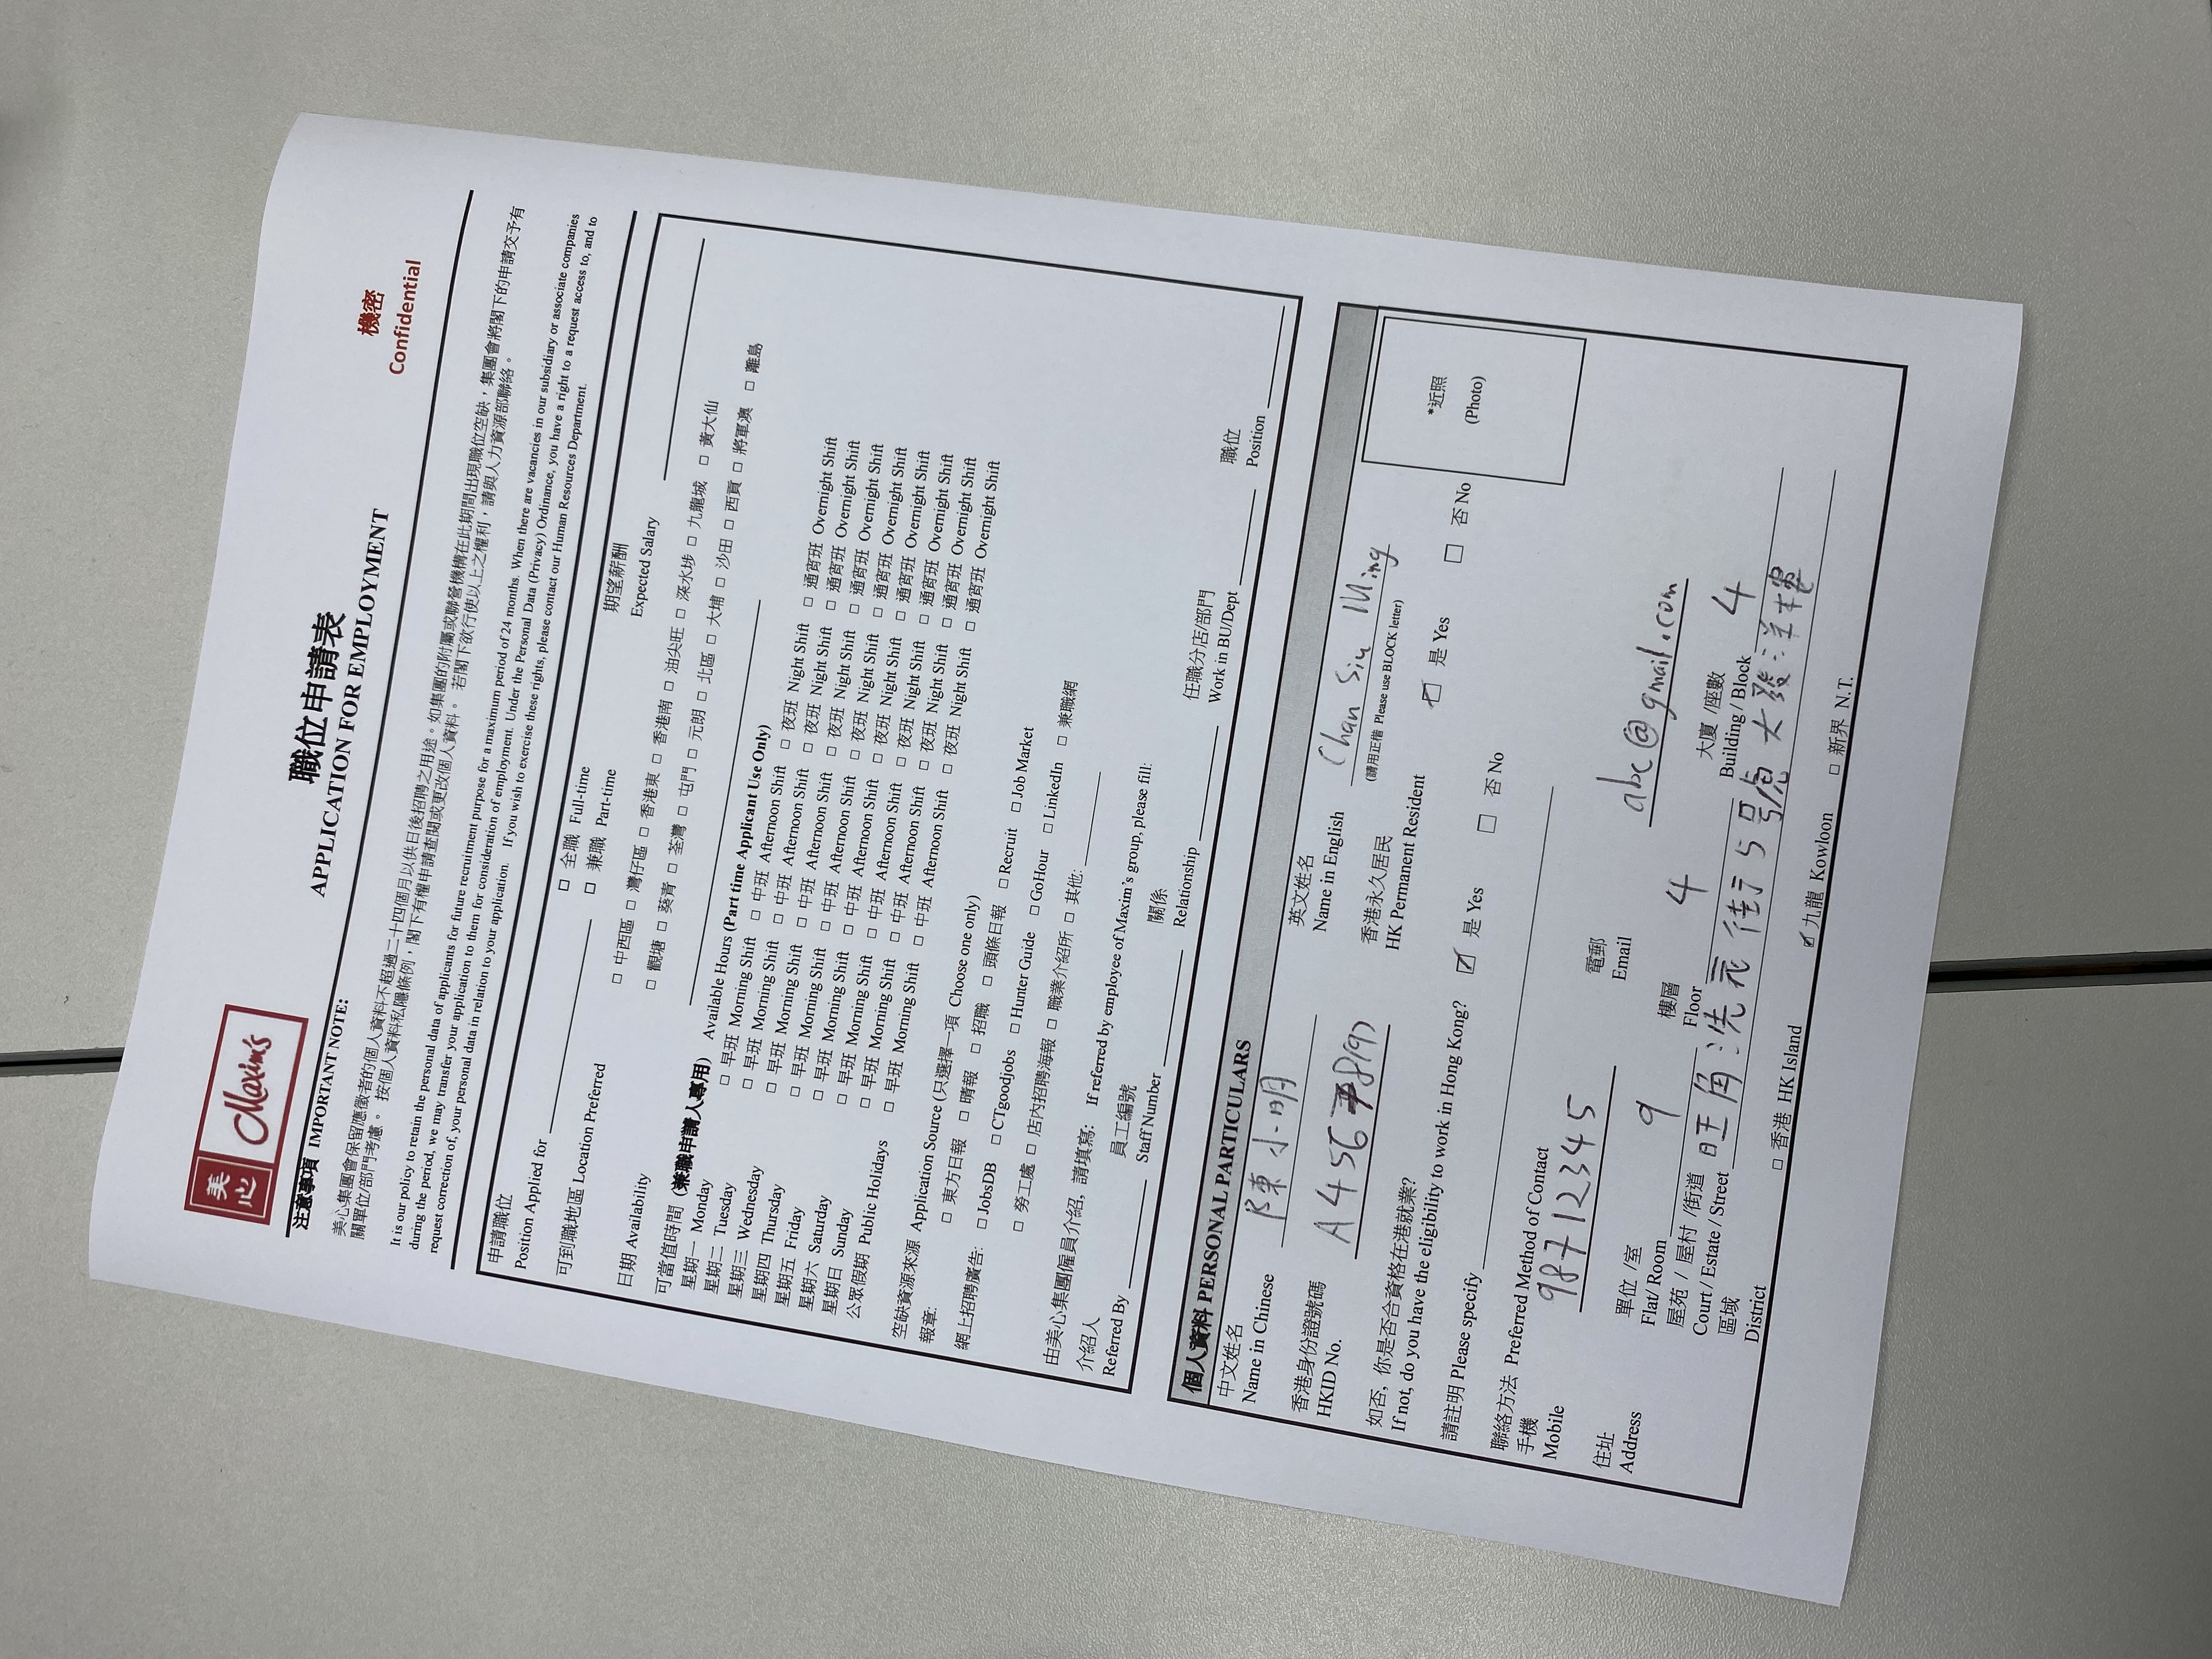 美心 Maxim's
職位申請表
APPLICATION FOR EMPLOYMENT
機密
Confidential
注意事項 IMPORTANT NOTE:
美心集團會保留應徵者的個人資料不超過二十四個月以供日後招聘之用途。如集團的附屬或聯營機構在此期間出現職位空缺，集團會將閣下的申請交予有
關單位/部門考慮。 按個人資料私隱條例，閣下有權申請查閱或更改個人資料。 若閣下欲行使以上之權利，請與人力資源部聯絡。
It is our policy to retain the personal data of applicants for future recruitment purpose for a maximum period of 24 months. When there are vacancies in our subsidiary or associate companies
during the period, we may transfer your application to them for consideration of employment. Under the Personal Data (Privacy) Ordinance, you have a right to a request access to, and to
request correction of, your personal data in relation to your application. If you wish to exercise these rights, please contact our Human Resources Department.
申請職位
Position Applied for
□ 全職 Full-time
□ 兼職 Part-time
期望薪酬
Expected Salary
可到職地區 Location Preferred
□ 中西區 □ 灣仔區 □ 香港東 □ 香港南 □ 油尖旺 □ 深水埗 □ 九龍城 □ 黃大仙
□ 觀塘 □ 葵青 □ 荃灣 □ 屯門 □ 元朗 □ 北區 □ 大埔 □ 沙田 □ 西貢 □ 將軍澳 □ 離島
日期 Availability
可當值時間 (兼職申請人專用) Available Hours (Part time Applicant Use Only)
星期一 Monday □ 早班 Morning Shift □ 中班 Afternoon Shift □ 夜班 Night Shift □ 通宵班 Overnight Shift
星期二 Tuesday □ 早班 Morning Shift □ 中班 Afternoon Shift □ 夜班 Night Shift □ 通宵班 Overnight Shift
星期三 Wednesday □ 早班 Morning Shift □ 中班 Afternoon Shift □ 夜班 Night Shift □ 通宵班 Overnight Shift
星期四 Thursday □ 早班 Morning Shift □ 中班 Afternoon Shift □ 夜班 Night Shift □ 通宵班 Overnight Shift
星期五 Friday □ 早班 Morning Shift □ 中班 Afternoon Shift □ 夜班 Night Shift □ 通宵班 Overnight Shift
星期六 Saturday □ 早班 Morning Shift □ 中班 Afternoon Shift □ 夜班 Night Shift □ 通宵班 Overnight Shift
星期日 Sunday □ 早班 Morning Shift □ 中班 Afternoon Shift □ 夜班 Night Shift □ 通宵班 Overnight Shift
公眾假期 Public Holidays □ 早班 Morning Shift □ 中班 Afternoon Shift □ 夜班 Night Shift □ 通宵班 Overnight Shift
空缺資源來源 Application Source (只選擇一項 Choose one only)
報章: □ 東方日報 □ 晴報 □ 招職 □ 頭條日報 □ Recruit □ Job Market
網上招聘廣告: □ JobsDB □ CTgoodjobs □ Hunter Guide □ GoHour □ LinkedIn □ 兼職網
□ 勞工處 □ 店內招聘海報 □ 職業介紹所 □ 其他:
由美心集團僱員介紹, 請填寫: If referred by employee of Maxim's group, please fill:
介紹人
Referred By
員工編號
Staff Number
關係
Relationship
任職分店/部門
Work in BU/Dept
職位
Position
個人資料 PERSONAL PARTICULARS
中文姓名
Name in Chinese 陳小明
英文姓名
Name in English Chan Siu Ming
(請用正楷 Please use BLOCK letter)
*近照
(Photo)
香港身份證號碼
HKID No. A45678(9)
香港永久居民
HK Permanent Resident ☑ 是 Yes □ 否 No
如否, 你是否合資格在港就業?
If not, do you have the eligibility to work in Hong Kong? ☑ 是 Yes □ 否 No
請註明 Please specify
聯絡方法 Preferred Method of Contact
手機
Mobile 98712345
電郵
Email abc@gmail.com
住址
Address
單位 /室
Flat/ Room 9
樓層
Floor 4
大廈 /座數
Building / Block 4
屋苑 / 屋村 /街道
Court / Estate / Street 旺角洗衣街5號大發洋樓
區域
District □ 香港 HK Island ☑ 九龍 Kowloon □ 新界 N.T.